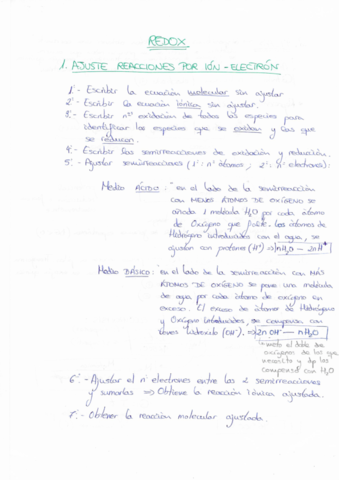 REDOX
1. AJUSTE REACCIONES POR IÓN-ELECTRÓN
1º.- Escribir la ecuación molecular sin ajustar
2º.- Escribir la ecuación iónica sin ajustar.
3º.- Escribir nos oxidación de todas las especies para
identificar las especies que se oxidan y las que
se reducen.
4º.- Escribir las semirreacciones de oxidación y reducción.
5º.- Ajustar semirreacciones (1º: nº átomos, 2º: nº electrones):
Medio ÁCIDO: "en el lado de la semirreacción
con MENOS ÁTOMOS DE OXÍGENO se
añade 1 molécula H2O por cada átomo
de Oxígeno que falte. Los átomos de
Hidrógeno introducidos con el agua, se
ajustan con protones (H+) ⇒ nH2O - 2nH+
Medio BÁSICO: "en el lado de la semirreacción con MÁS
ÁTOMOS DE OXÍGENO se pone una molécula
de agua por cada átomo de oxígeno en
exceso. El exceso de átomos de Hidrógeno
y Oxígeno introducidos, se compensa con
iones hidróxido (OH-). ⇒ 2n OH- - nH2O
meto el doble de
oxígenos de los que
necesito y los
compenso con H2O
6º.- Ajustar el nº electrones entre las 2 semirreacciones
y sumarlas ⇒ Obtiene la reacción iónica ajustada.
7º.- Obtener la reacción molecular ajustada.